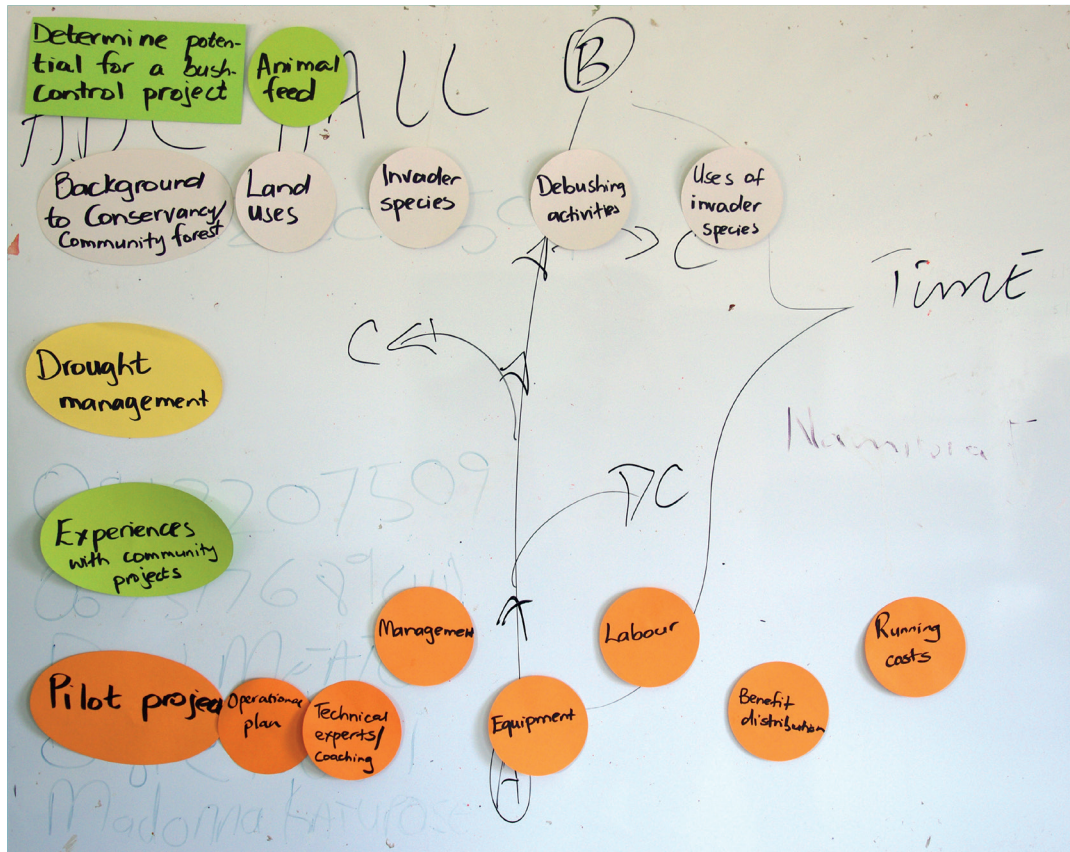 Determine poten-
tial for a bush-
control project
Animal
feed
B
ALL
Background
to Conservancy/
Community forest
Land
uses
Invader
species
Debushing
activities
Uses of
invader
species
C
TimE
C
Drought
management
DC
Experiences
with community
projects
Management
Labour
Running
costs
Pilot projec
Operational
plan
Technical
experts/
coaching
Equipment
Benefit
distribution
A
Madonna